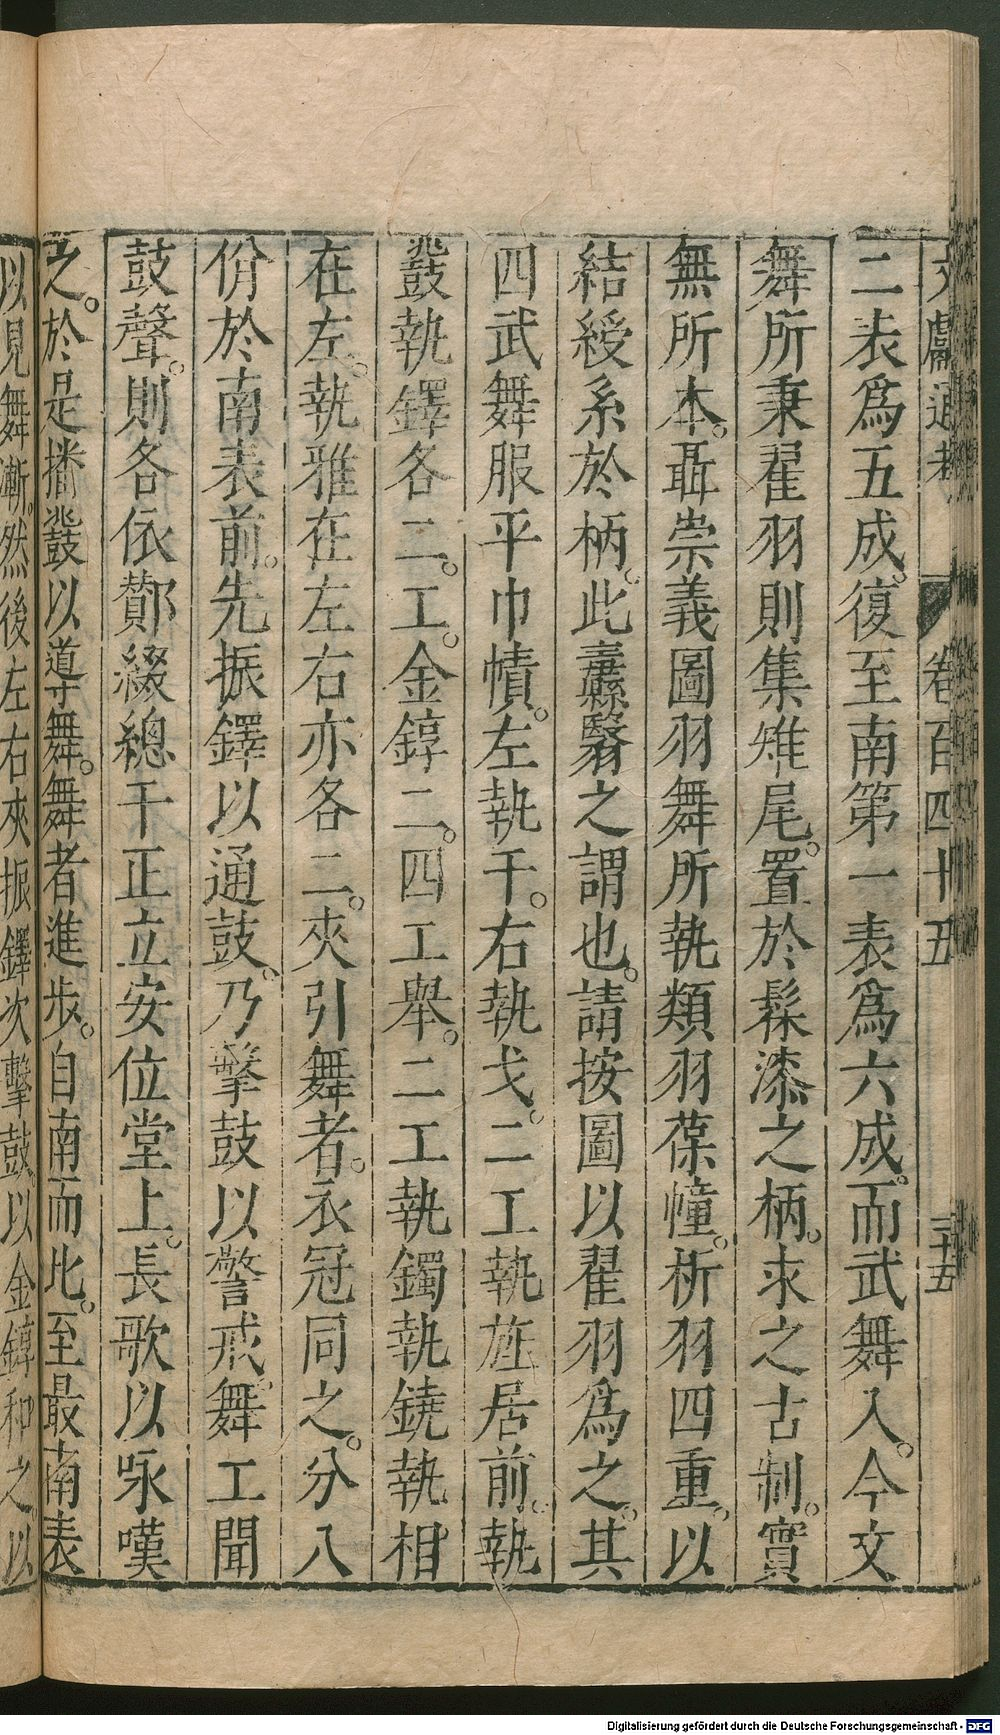 文獻通考 卷百四十五 三十五
二表爲五成。復至南第一表爲六成。而武舞入。今文
舞所秉翟羽則集雉尾。置於髹漆之柄。求之古制。實
無所本。聶崇義圖羽舞所執類羽葆幢。析羽四重。以
結綬系於柄。此纛翳之謂也。請按圖以翟羽爲之。其
四武舞服平巾幘。左執干。右執戈。二工執旌居前。執
鼗執鐸各二工。金錞二。四工舉。二工執鐲執鐃執相
在左。執雅在左右亦各二。夾引舞者。衣冠同之。分八
佾於南表前。先振鐸以通鼓。乃擊鼓以警戒。舞工聞
鼓聲。則各依酇綴總干正立安位堂上。長歌以咏嘆
之。於是播鼗以導舞。舞者進步。自南而北。至最南表
以見舞漸。然後左右夾振鐸次擊鼓。以金錞和之。以
Digitalisierung gefördert durch die Deutsche Forschungsgemeinschaft - DFG